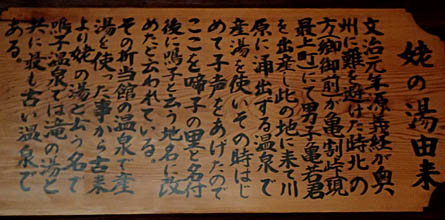 姥の湯由来
文治元年源義経が奥
州に難を遊けた時北の
方郷御前が亀割峠現
最上町にて男子亀若君
を出産し此の地に来て川
原に涌出する温泉で
産湯を使いその時はじ
めて子声をあげたので
ここを啼子の里と名付
後に鳴子と云う地名に改
めたと云われている。
その折当館の温泉で産
湯を使った事から古来
より姥の湯と云う名で
鳴子温泉では滝の湯と
共に最も古い温泉で
ある。